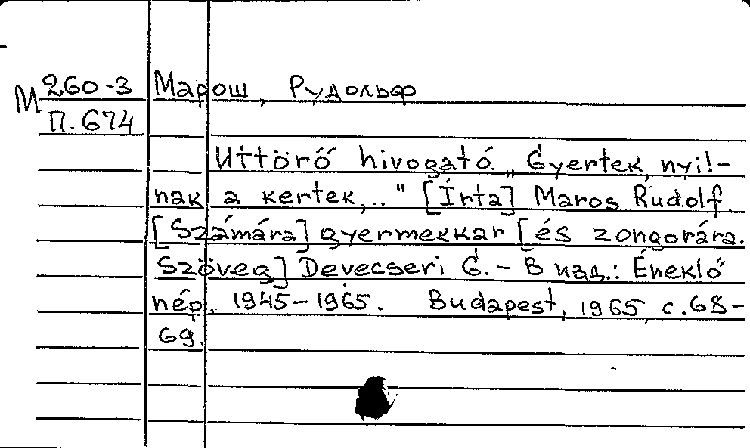 М 260-3 Марош, Рудольф
П.674
Úttörő hivogató „Gyertek, nyíl-
nak a kertek,.." [Írta] Maros Rudolf.
[Számára] gyermekkar [és zongorára.
Szöveg] Devecseri G. – В изд.: Éneklő
nép. 1945–1965. Budapest, 1965, с.68-
69.